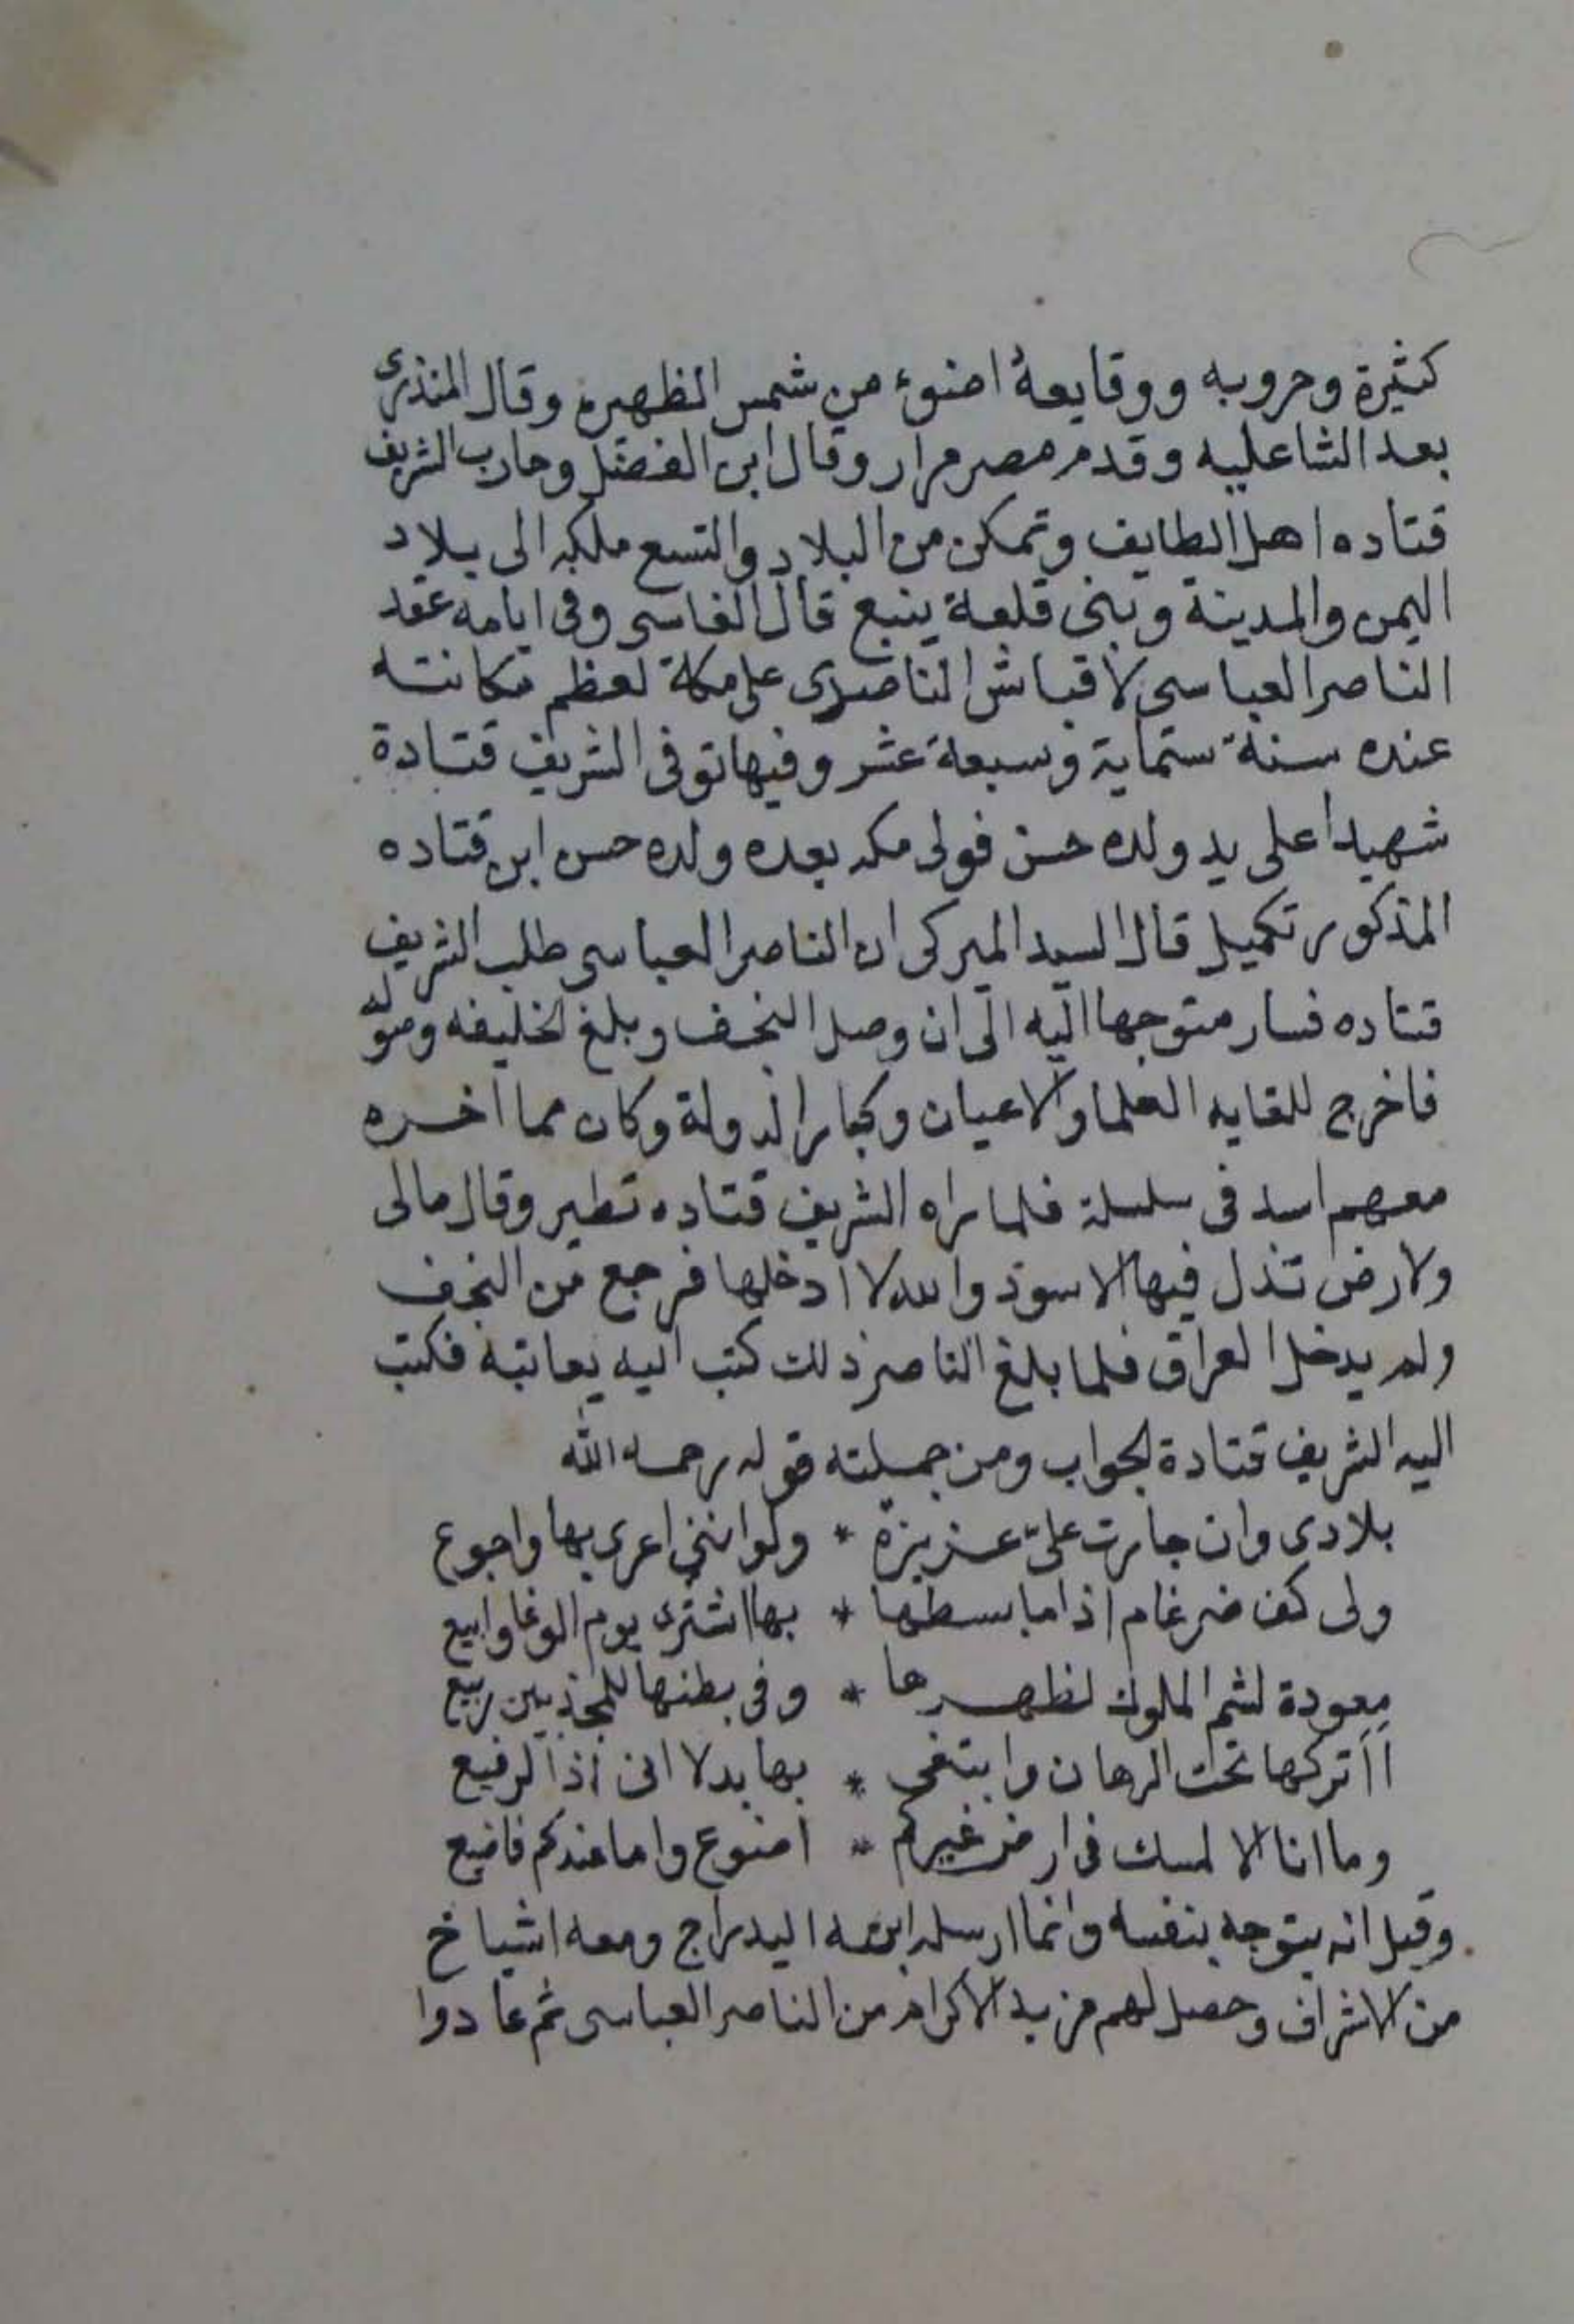 كثيرة وحروبه ووقايعه اضوء من شمس الظهيره وقال المنذرى
بعد الثنا عليه وقدم مصر مرار وقال ابن الفضل وحارب الشريف
قتاده اهل الطايف وتمكن من البلاد والتسع ملكه الى بلاد
اليمن والمدينة وبنى قلعة ينبع قال الفاسى وفى ايامه عقد
الناصر العباسى لاقباش الناصرى على مكة لعظم مكانته
عنده سنة ستماية وسبعة عشر وفيها توفى الشريف قتادة
شهيدا على يد ولده حسن فولى مكه بعده ولده حسن ابن قتاده
المذكور تكميل قال السيد الميركى ان الناصر العباسى طلب الشريف
قتاده فسار متوجها اليه الى ان وصل النجف وبلغ الخليفه وصوله
فاخرج للقايه العلما والاعيان وكبار الدولة وكان مما اخره
معهم اسد فى سلسلة فلما راه الشريف قتاده تطير وقال مالى
ولارض تذل فيها الاسود والله لا ادخلها فرجع من النجف
ولم يدخل العراق فلما بلغ الناصر ذلك كتب اليه يعاتبه فكتب
اليه الشريف قتادة الجواب ومن جملته قوله رحمه الله
بلادى وان جارت علىّ عزيزة * ولو اننى اعرى بها واجوع
ولى كف ضرغام اذا ما بسطها * بها اشترى يوم الوغا وابيع
معودة لشم الملوك لظهرها * وفى بطنها للمجذبين ربيع
أأتركها تحت الرهان وابتغى * بها بدلا انى اذا لرفيع
وما انا الا لمسك فى ارض غيركم * اضوع واما عندكم فاضيع
وقيل انه يتوجه بنفسه وانما ارسله ابنه اليه راج ومعه اشياخ
من الاشراف وحصل لهم مزيد الاكرام من الناصر العباسى ثم عادوا